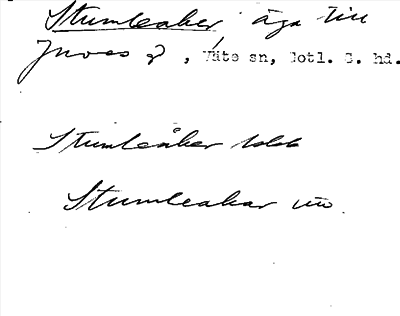 Stumleaker äga till
Jnoes g, Väte sn, Gotl. S. hd.
Stumleåker
Stumleakar